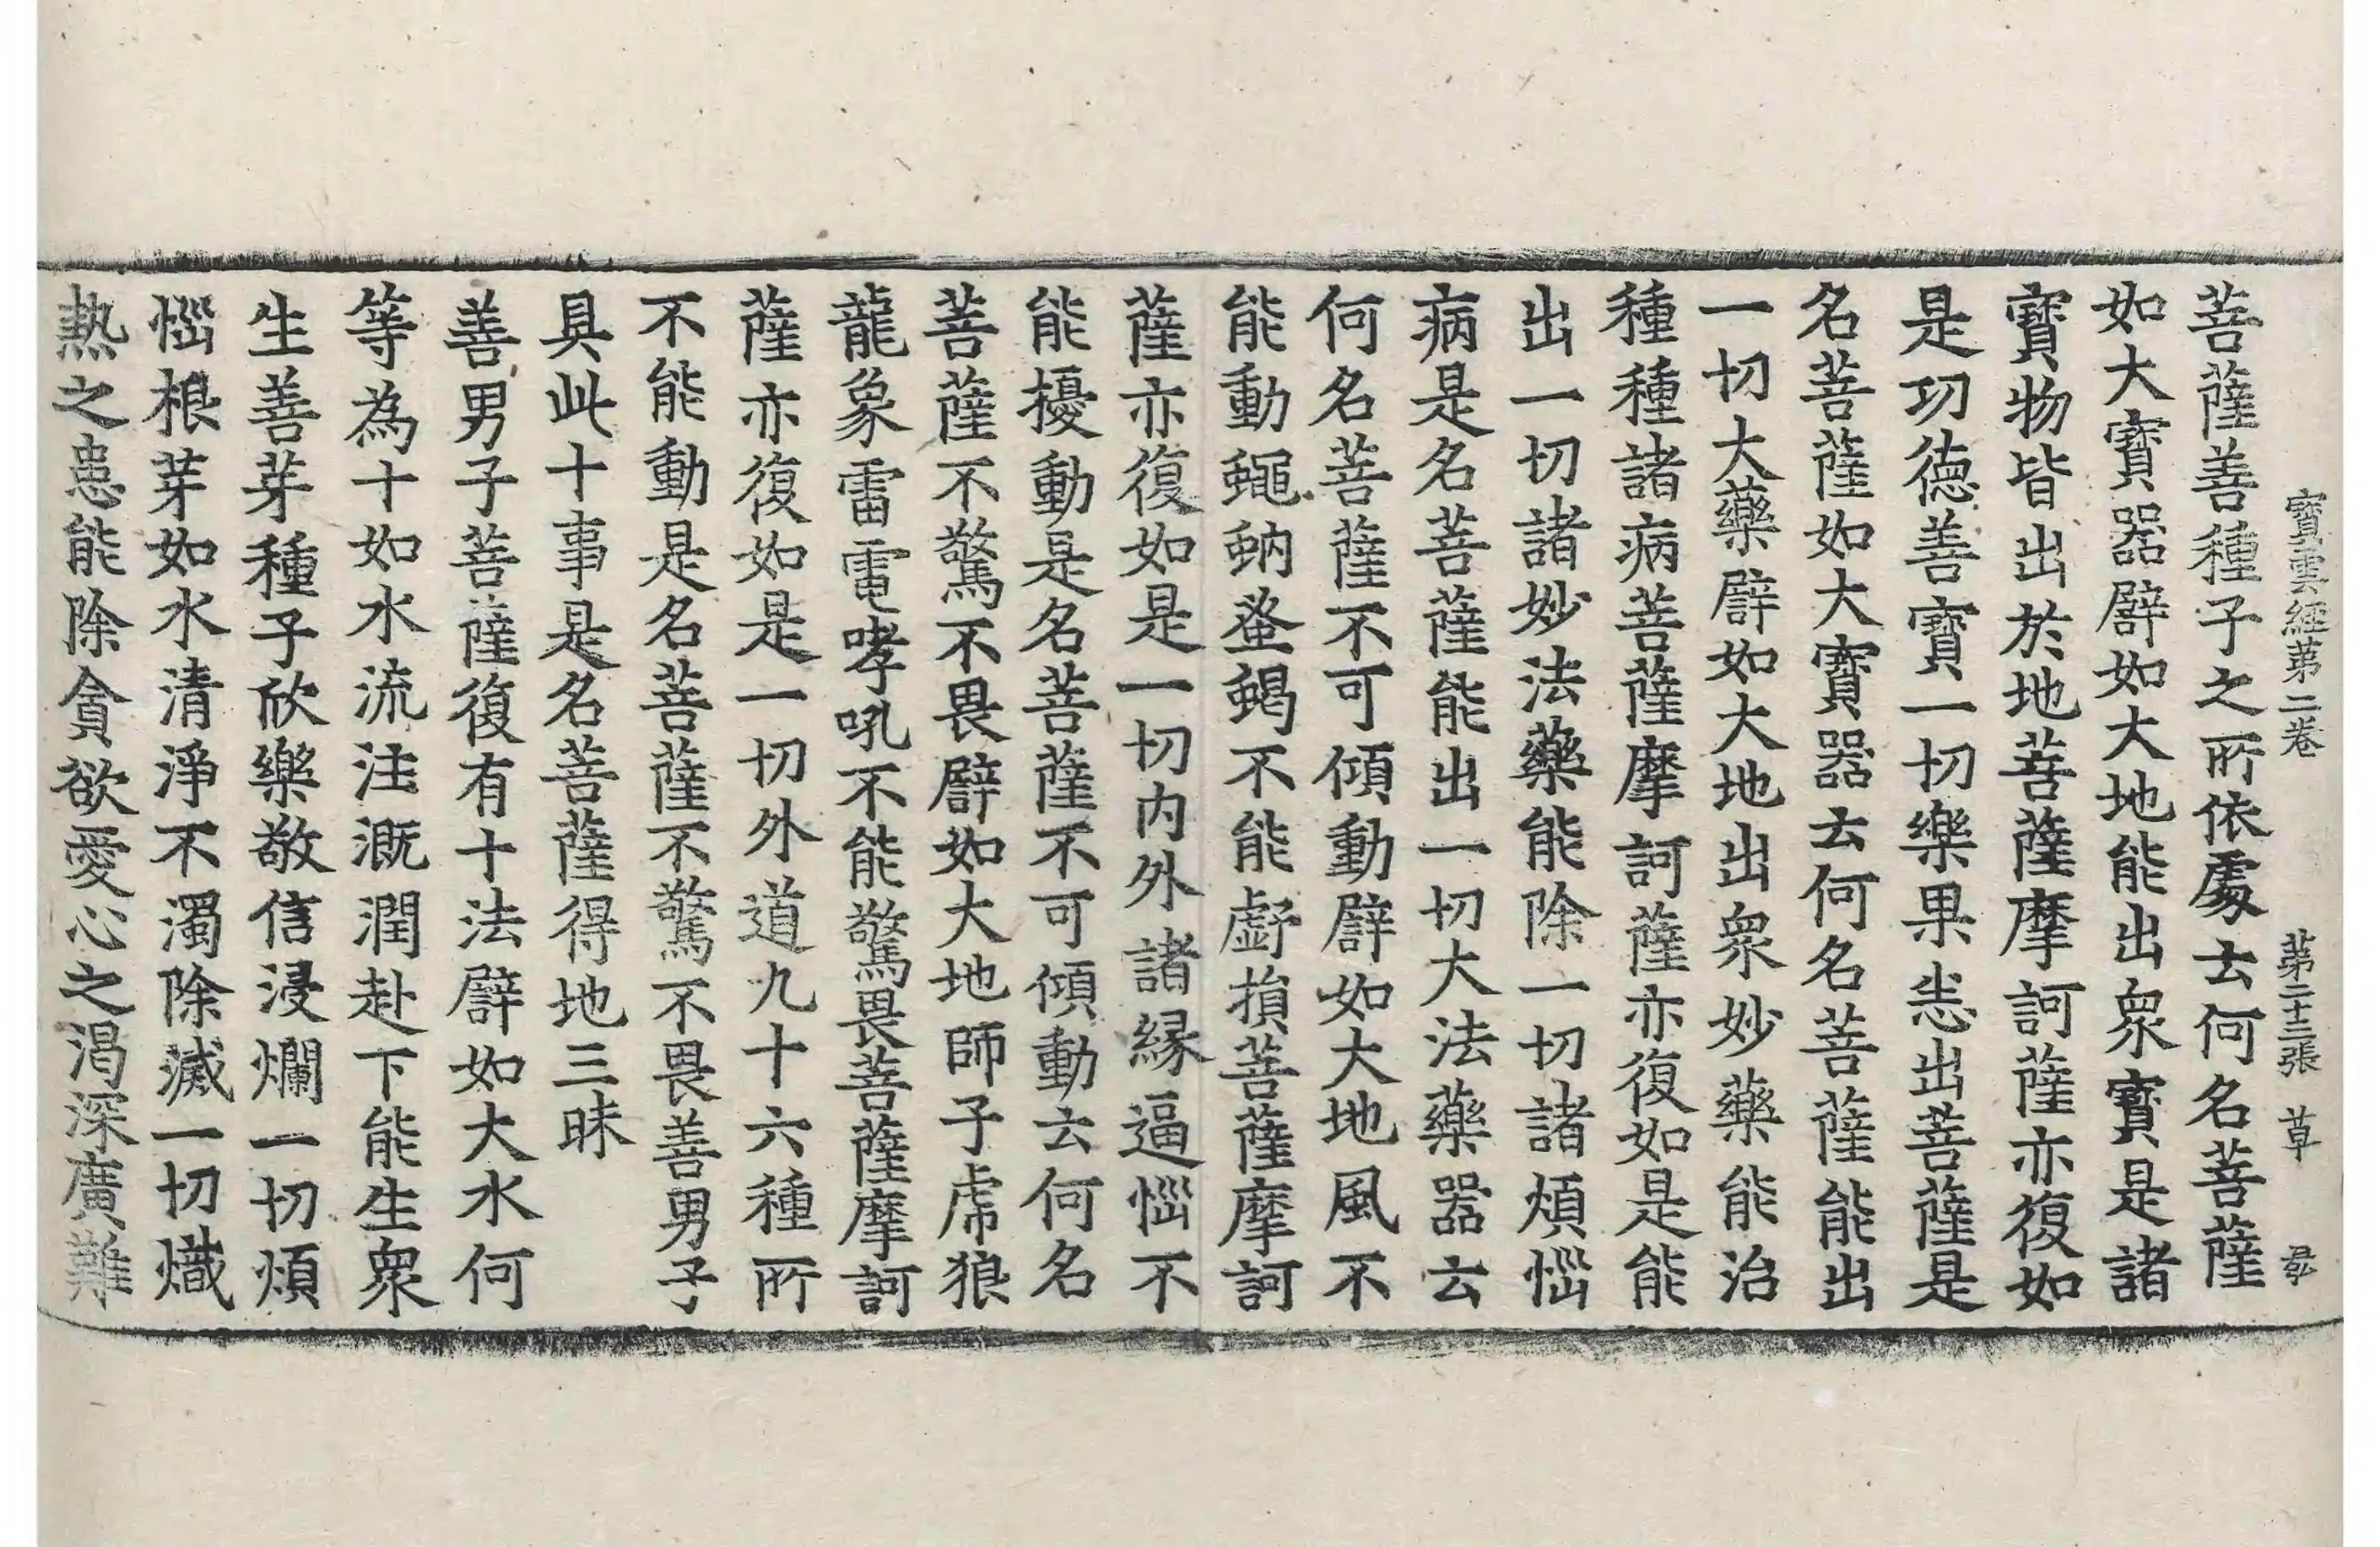 寳雲經第二卷 第二十三張 草
菩薩善種子之所依處去何名菩薩
如大寳器譬如大地能出衆寳是諸
寳物皆出於地菩薩摩訶薩亦復如
是功德善寳一切樂果恙出菩薩是
名菩薩如大寳器去何名菩薩能出
一切大藥譬如大地出衆妙藥能治
種種諸病菩薩摩訶薩亦復如是能
出一切諸妙法藥能除一切諸煩惱
病是名菩薩能出一切大法藥器云
何名菩薩不可傾動譬如大地風不
能動蠅蚋蚤蝎不能虧損菩薩摩訶
薩亦復如是一切内外諸縁逼惱不
能擾動是名菩薩不可傾動云何名
菩薩不驚不畏譬如大地師子虎狼
龍象雷電哮吼不能驚畏菩薩摩訶
薩亦復如是一切外道九十六種所
不能動是名菩薩不驚不畏善男子
具此十事是名菩薩得地三昧
善男子菩薩復有十法譬如大水何
等為十如水流注溉潤赴下能生衆
生善芽種子欣樂敬信浸爛一切煩
惱根芽如水清淨不濁除滅一切熾
熱之患能除貪欲愛心之渴深廣難